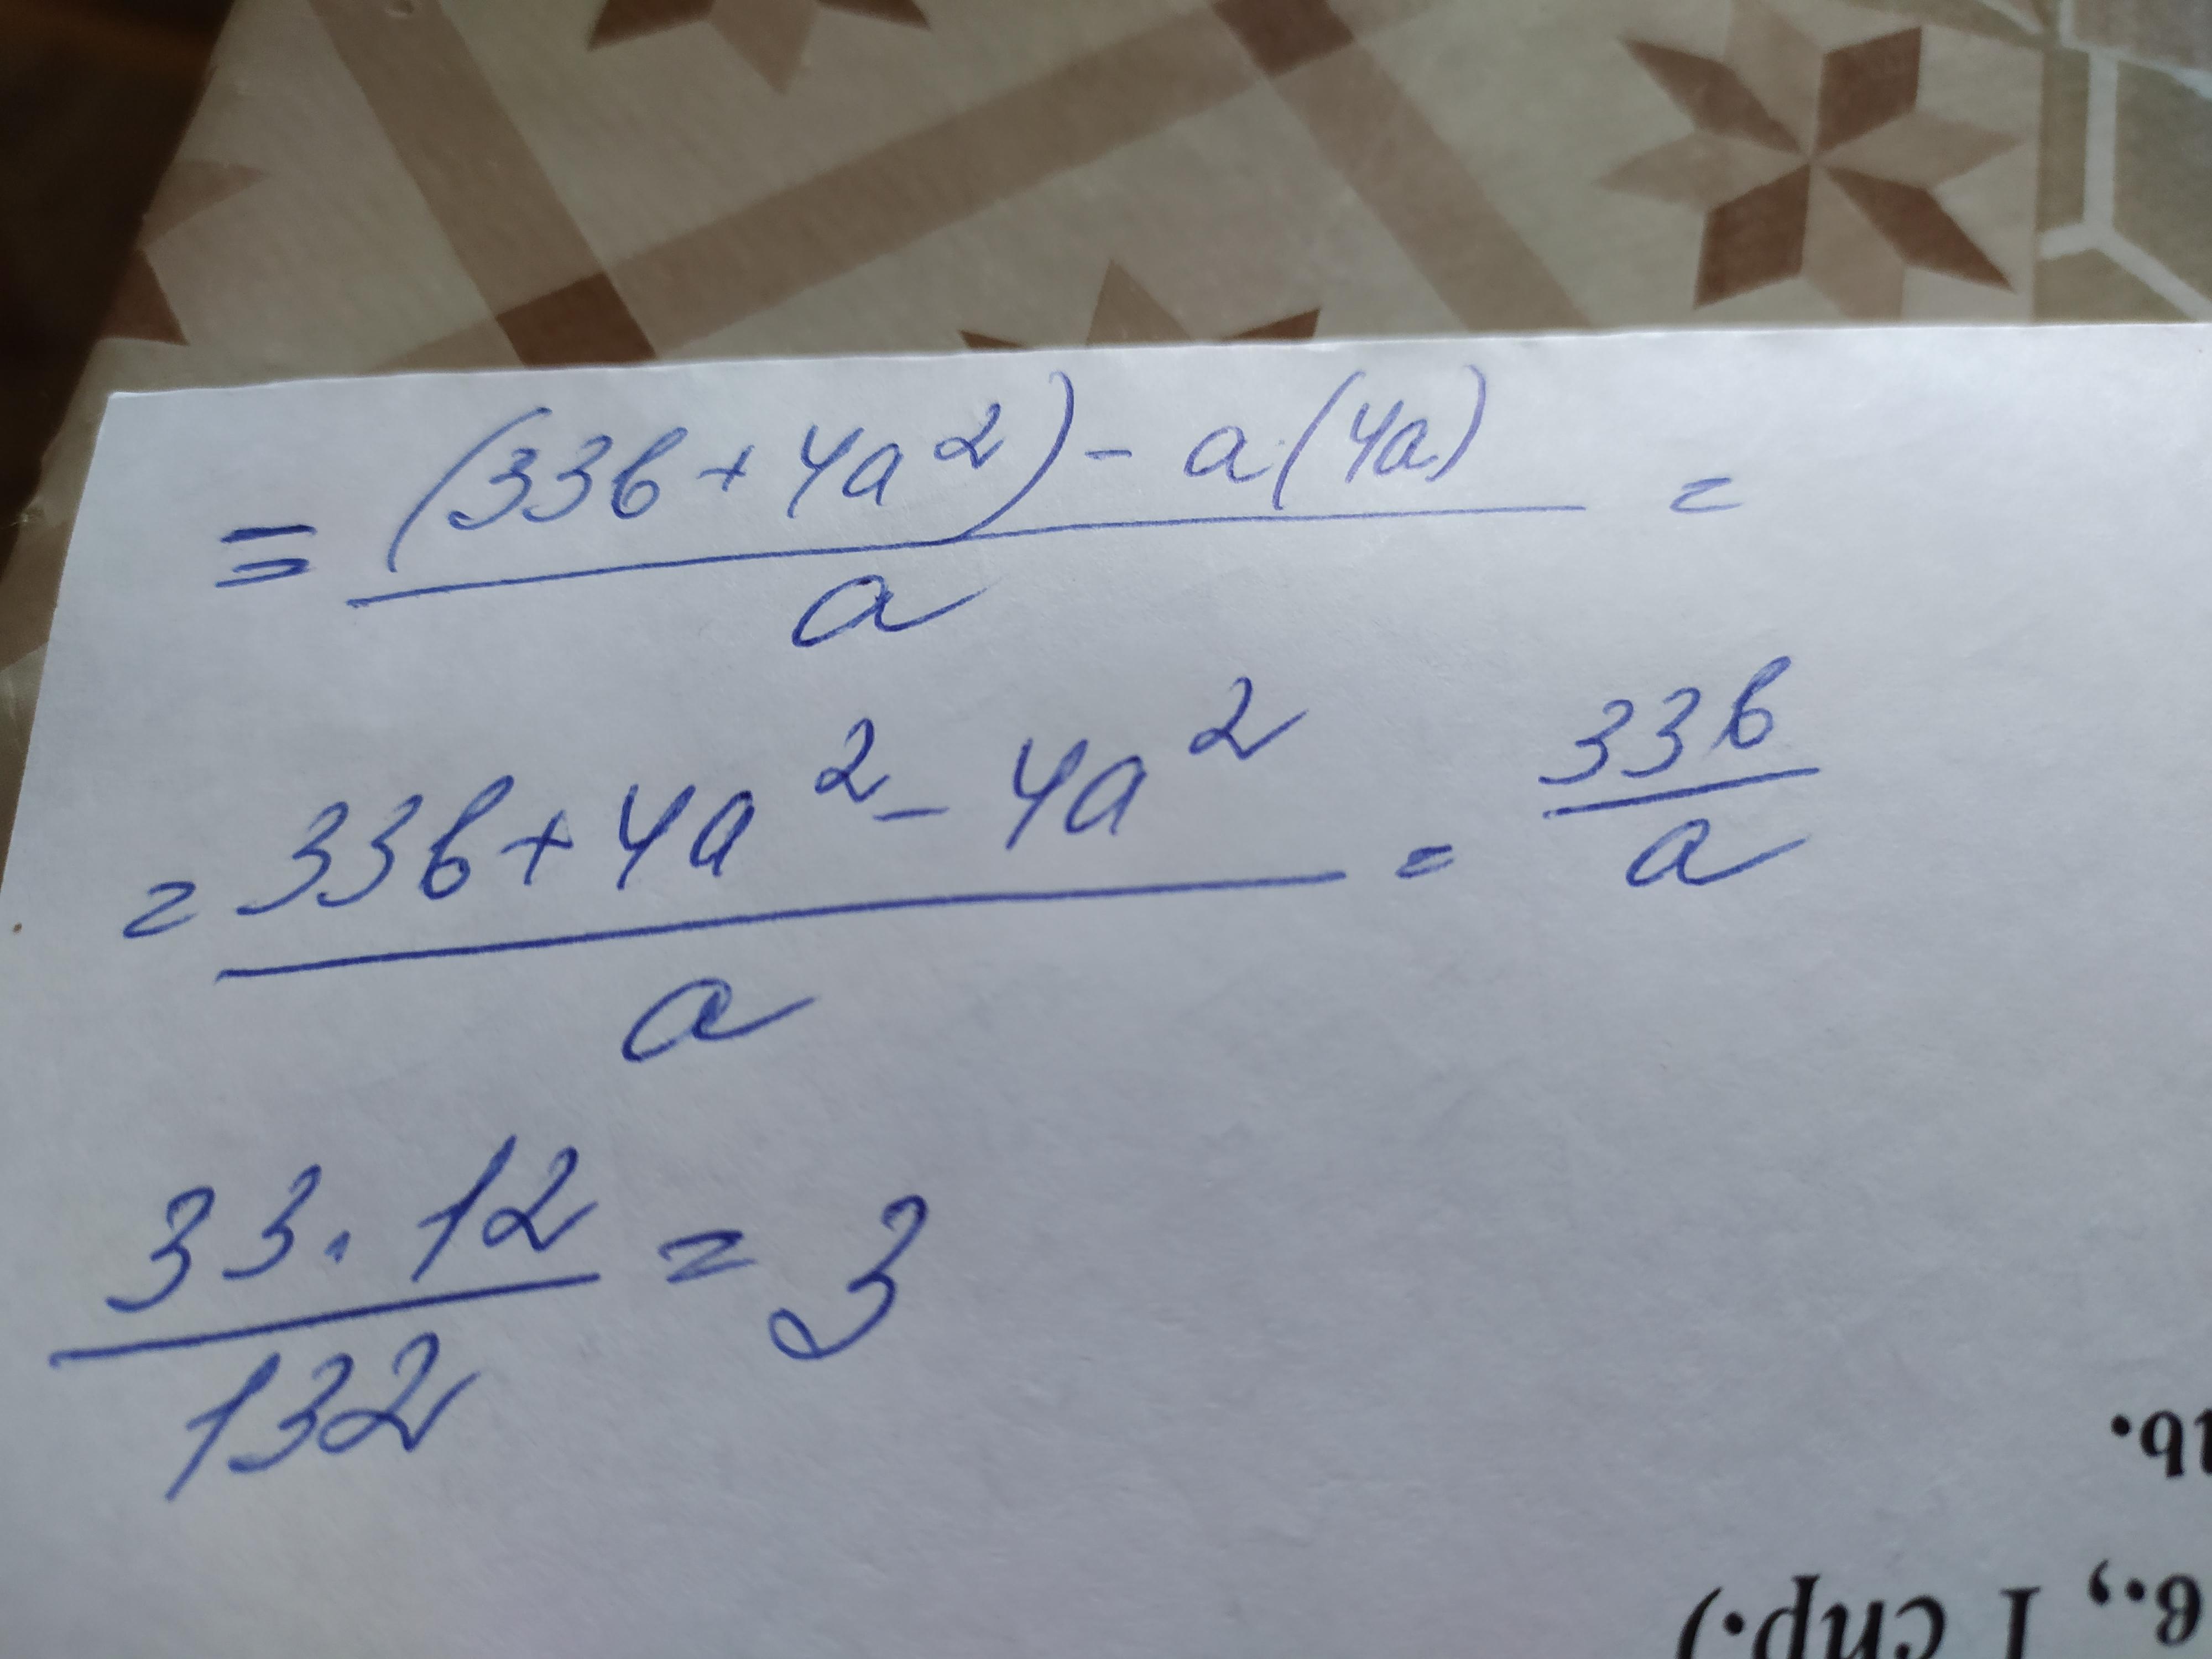 = \frac{(33b + 4a^2) - a(4a)}{a} =
= \frac{33b + 4a^2 - 4a^2}{a} = \frac{33b}{a}
\frac{33 \cdot 12}{132} = 3
в., I спр.)